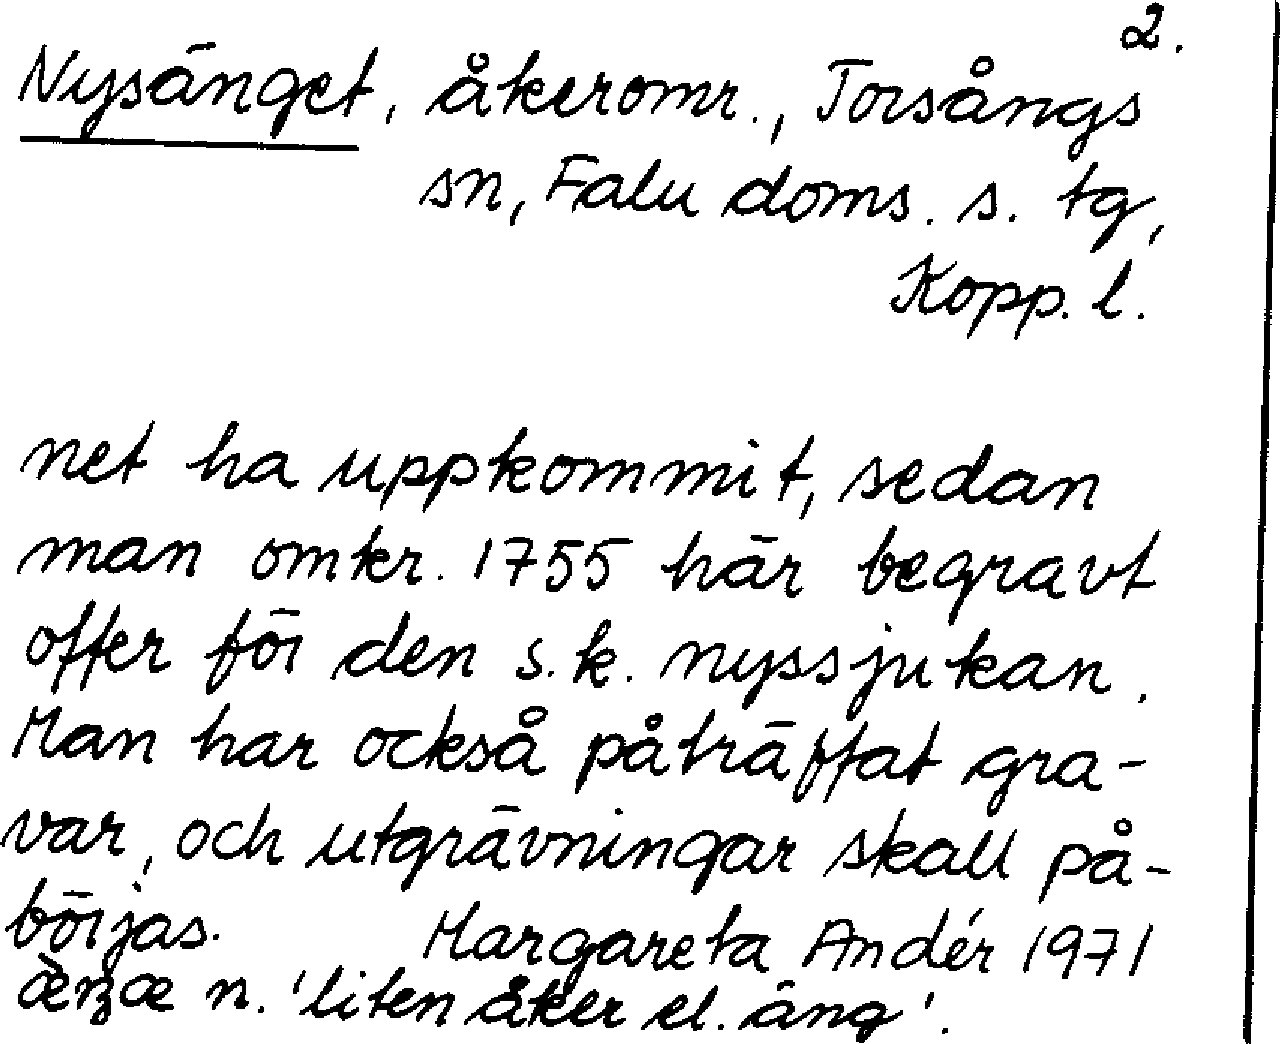 2.
Nysänget, åkeromr., Torsångs
sn, Falu doms. s. tg,
Kopp. l.
net ha uppkommit, sedan
man omkr. 1755 här begravt
offer för den s.k. nyssjukan.
Man har också påträffat gra-
var, och utgrävningar skall på-
börjas. Margareta Andér 1971
n. 'liten åker el. äng'.